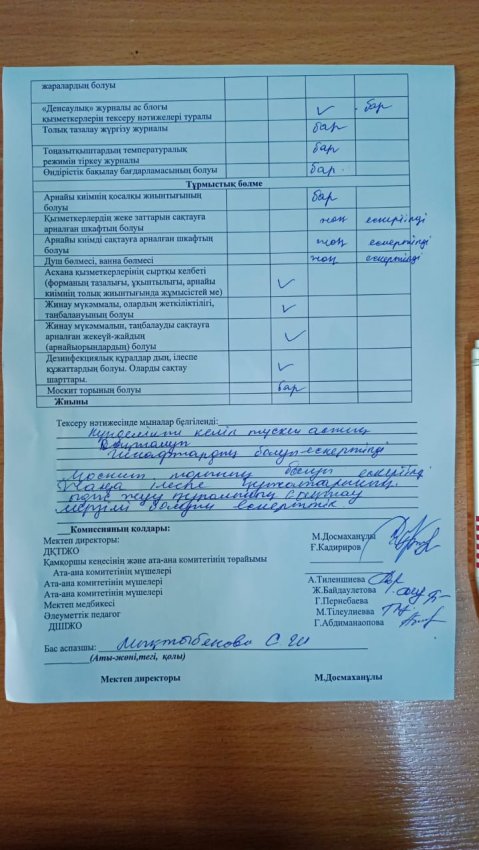 жаралардың болуы
«Денсаулық» журналы ас блогы
қызметкерлерін тексеру нәтижелері туралы ✓ бар
Толық тазалау жүргізу журналы бар
Тоңазытқыштардың температуралық
режимін тіркеу журналы бар
Өндірістік бақылау бағдарламасының болуы бар.
Тұрмыстық бөлме
Арнайы киімнің қосалқы жиынтығының
болуы бар
Қызметкерлердің жеке заттарын сақтауға
арналған шкафтың болуы жоқ ескертілді
Арнайы киімді сақтауға арналған шкафтың
болуы жоқ ескертілді
Душ бөлмесі, ванна бөлмесі жоқ ескертілді
Асхана қызметкерлерінің сыртқы келбеті
(форманың тазалығы, ұқыптылығы, арнайы
киімнің толық жиынтығында жұмысістей ме) ✓
Жинау мүкәммалы, олардың жеткіліктілігі,
таңбалануының болуы ✓
Жинау мүкәммалын, таңбалауды сақтауға
арналған жекеүй-жайдың
(арнайыорындардың) болуы ✓
Дезинфекциялық құралдар дың, ілеспе
құжаттардың болуы. Оларды сақтау
шарттары. ✓
Москит торының болуы бар
Жиыны
Тексеру нәтижесінде мыналар белгіленді:
келіп түскен
Шкафтардың болуы ескертілді
Москит торының болуы ескерілді
ілеспе құжаттарының
сақтау
мерзімі болуы ескерттік
Комиссияның қолдары:
Мектеп директоры: М.Досмаханұлы
ДҚТІЖО Г.Кадриров
Қамқоршы кеңесінің және ата-ана комитетінің төрайымы
Ата-ана комитетінің мүшелері А.Тиленшиева
Ата-ана комитетінің мүшелері Ж.Байдаулетова
Ата-ана комитетінің мүшелері Г.Пернебаева
Мектеп медбикесі М.Тілеулиевва
Әлеуметтік педагог Г.Абдиманаопова
ДШІЖО
Бас аспазшы: Мықтыбекова С. Ш
(Аты-жөні,тегі, қолы)
Мектеп директоры М.Досмаханұлы